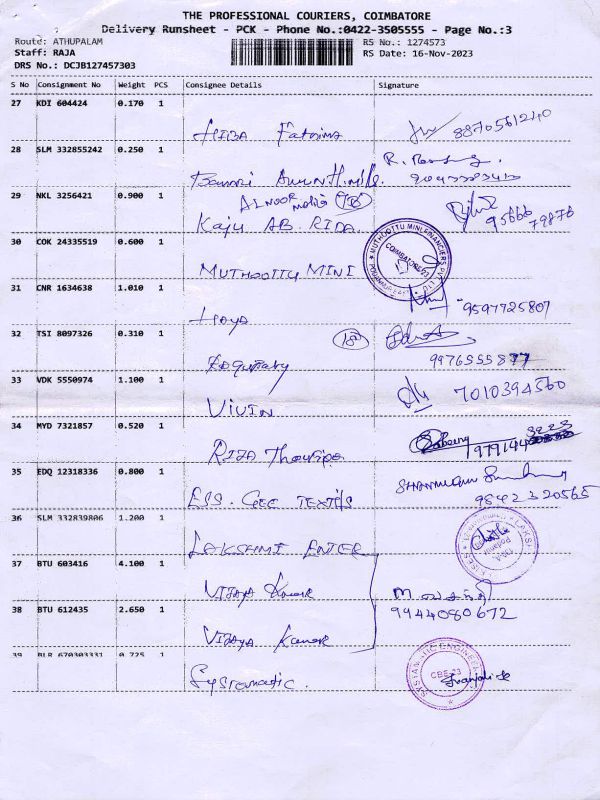 THE PROFESSIONAL COURIERS, COIMBATORE
Delivery Runsheet - PCK - Phone No.:0422-3505555 - Page No.:3
Route: ATHUPALAM
RS No.: 1274573
Staff: RAJA
RS Date: 16-Nov-2023
DRS No.: DCJB127457303
S No Consignment No Weight PCS Consignee Details Signature
27 KDI 604424 0.170 1
Fatima 8870561240
28 SLM 332855242 0.250 1
29 NKL 3256421 0.900 1
AL NOOR
Kaju AB. RIDA 95666
79876
30 COK 24335519 0.600 1
MUTHOOTTU MINI FINANCIERS PVT LTD
COIMBATORE-23
MUTHOOTTU MINI
31 CNR 1634638 1.010 1
9597725807
32 TSI 8097326 0.310 1
9976555877
33 VDK 5550974 1.100 1
VIVIN 7010394560
34 MYD 7321857 0.520 1
35 EDQ 12318336 0.800 1
ESS. GEE TEXTILS 9842320565
36 SLM 332839806 1.200 1
LAKSHMI ENTER
37 BTU 603416 4.100 1
VIJAYA Kumar
38 BTU 612435 2.650 1
9944080672
VIJAYA Kumar
39 BLR 670303331 0.725 1
SYSTAMATIC ENGINEER
CBE-23
Systematic.